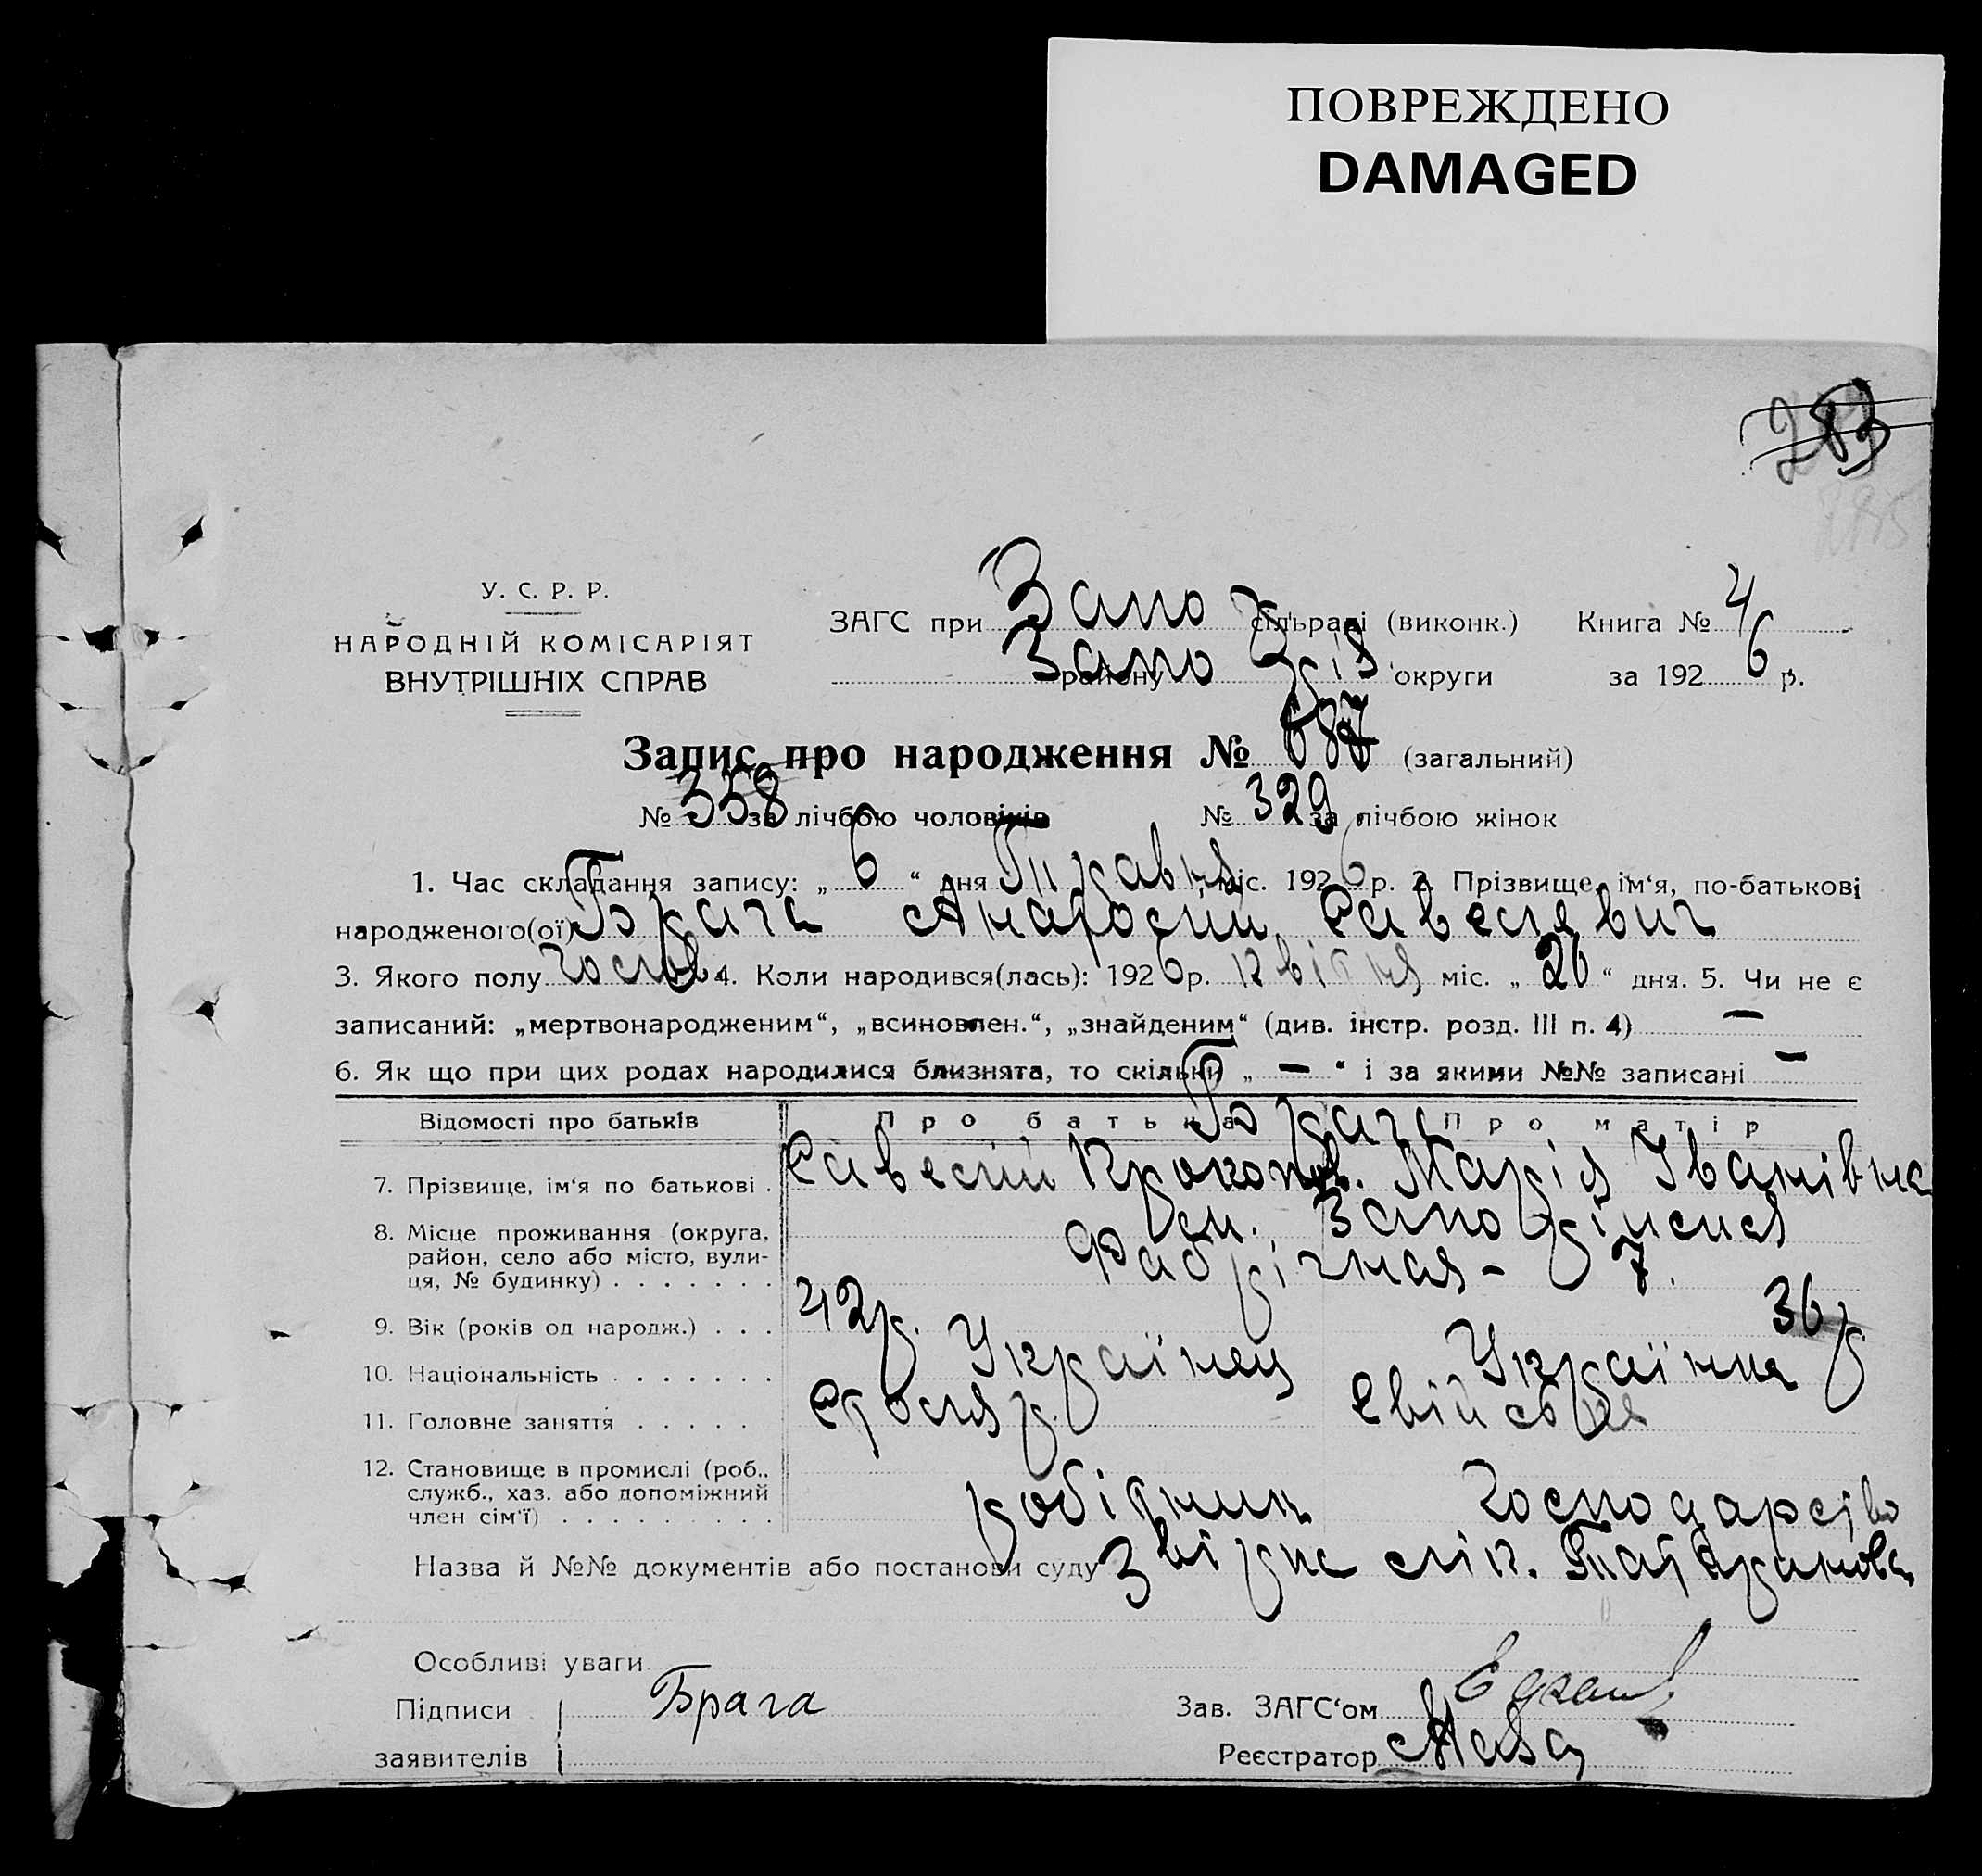 ПОВРЕЖДЕНО
DAMAGED
283
У. С. Р. Р.
НАРОДНІЙ КОМІСАРІЯТ
ВНУТРІШНІХ СПРАВ
ЗАГС при Запо сільраді (виконк.) Книга № 4
району Запо округи за 1926 р.
Запис про народження № 687 (загальний)
№ 358 за лічбою чоловіків № 329 за лічбою жінок
1. Час складання запису: „ 6 “ дня Травня міс. 1926 р. 2. Прізвище, ім‘я, по-батькові
народженого(ої) Брага Анатолій Савелєвич
3. Якого полу чолов. 4. Коли народився(лась): 1926 р. квітня міс. „ 26 “ дня. 5. Чи не є
записаний: „мертвонародженим“, „всиновлен.“, „знайденим“ (див. інстр. розд. III п. 4) —
6. Як що при цих родах народилися близнята, то скільки „ — “ і за якими №№ записані —
Відомості про батьків Про батька Про матір
Брага
7. Прізвище, ім‘я по батькові . Савелій Прокопов. Марія Іванівна
8. Місце проживання (округа,
район, село або місто, вули-
ця, № будинку) . . . . . . . ст. Запоріжжя
Фабрічная - 7.
9. Вік (років од народж.) . . . 42 р. 36 р
10. Національність . . . . . . . Українец Українка
11. Головне заняття . . . . . Столяр. Свійське
12. Становище в промислі (роб.,
служб., хаз. або допоміжний
член сім‘ї) . . . . . . . . . робітник Господарство
Назва й №№ документів або постанови суду
Особливі уваги
Підписи
заявителів Брага
Зав. ЗАГС‘ом
Реєстратор